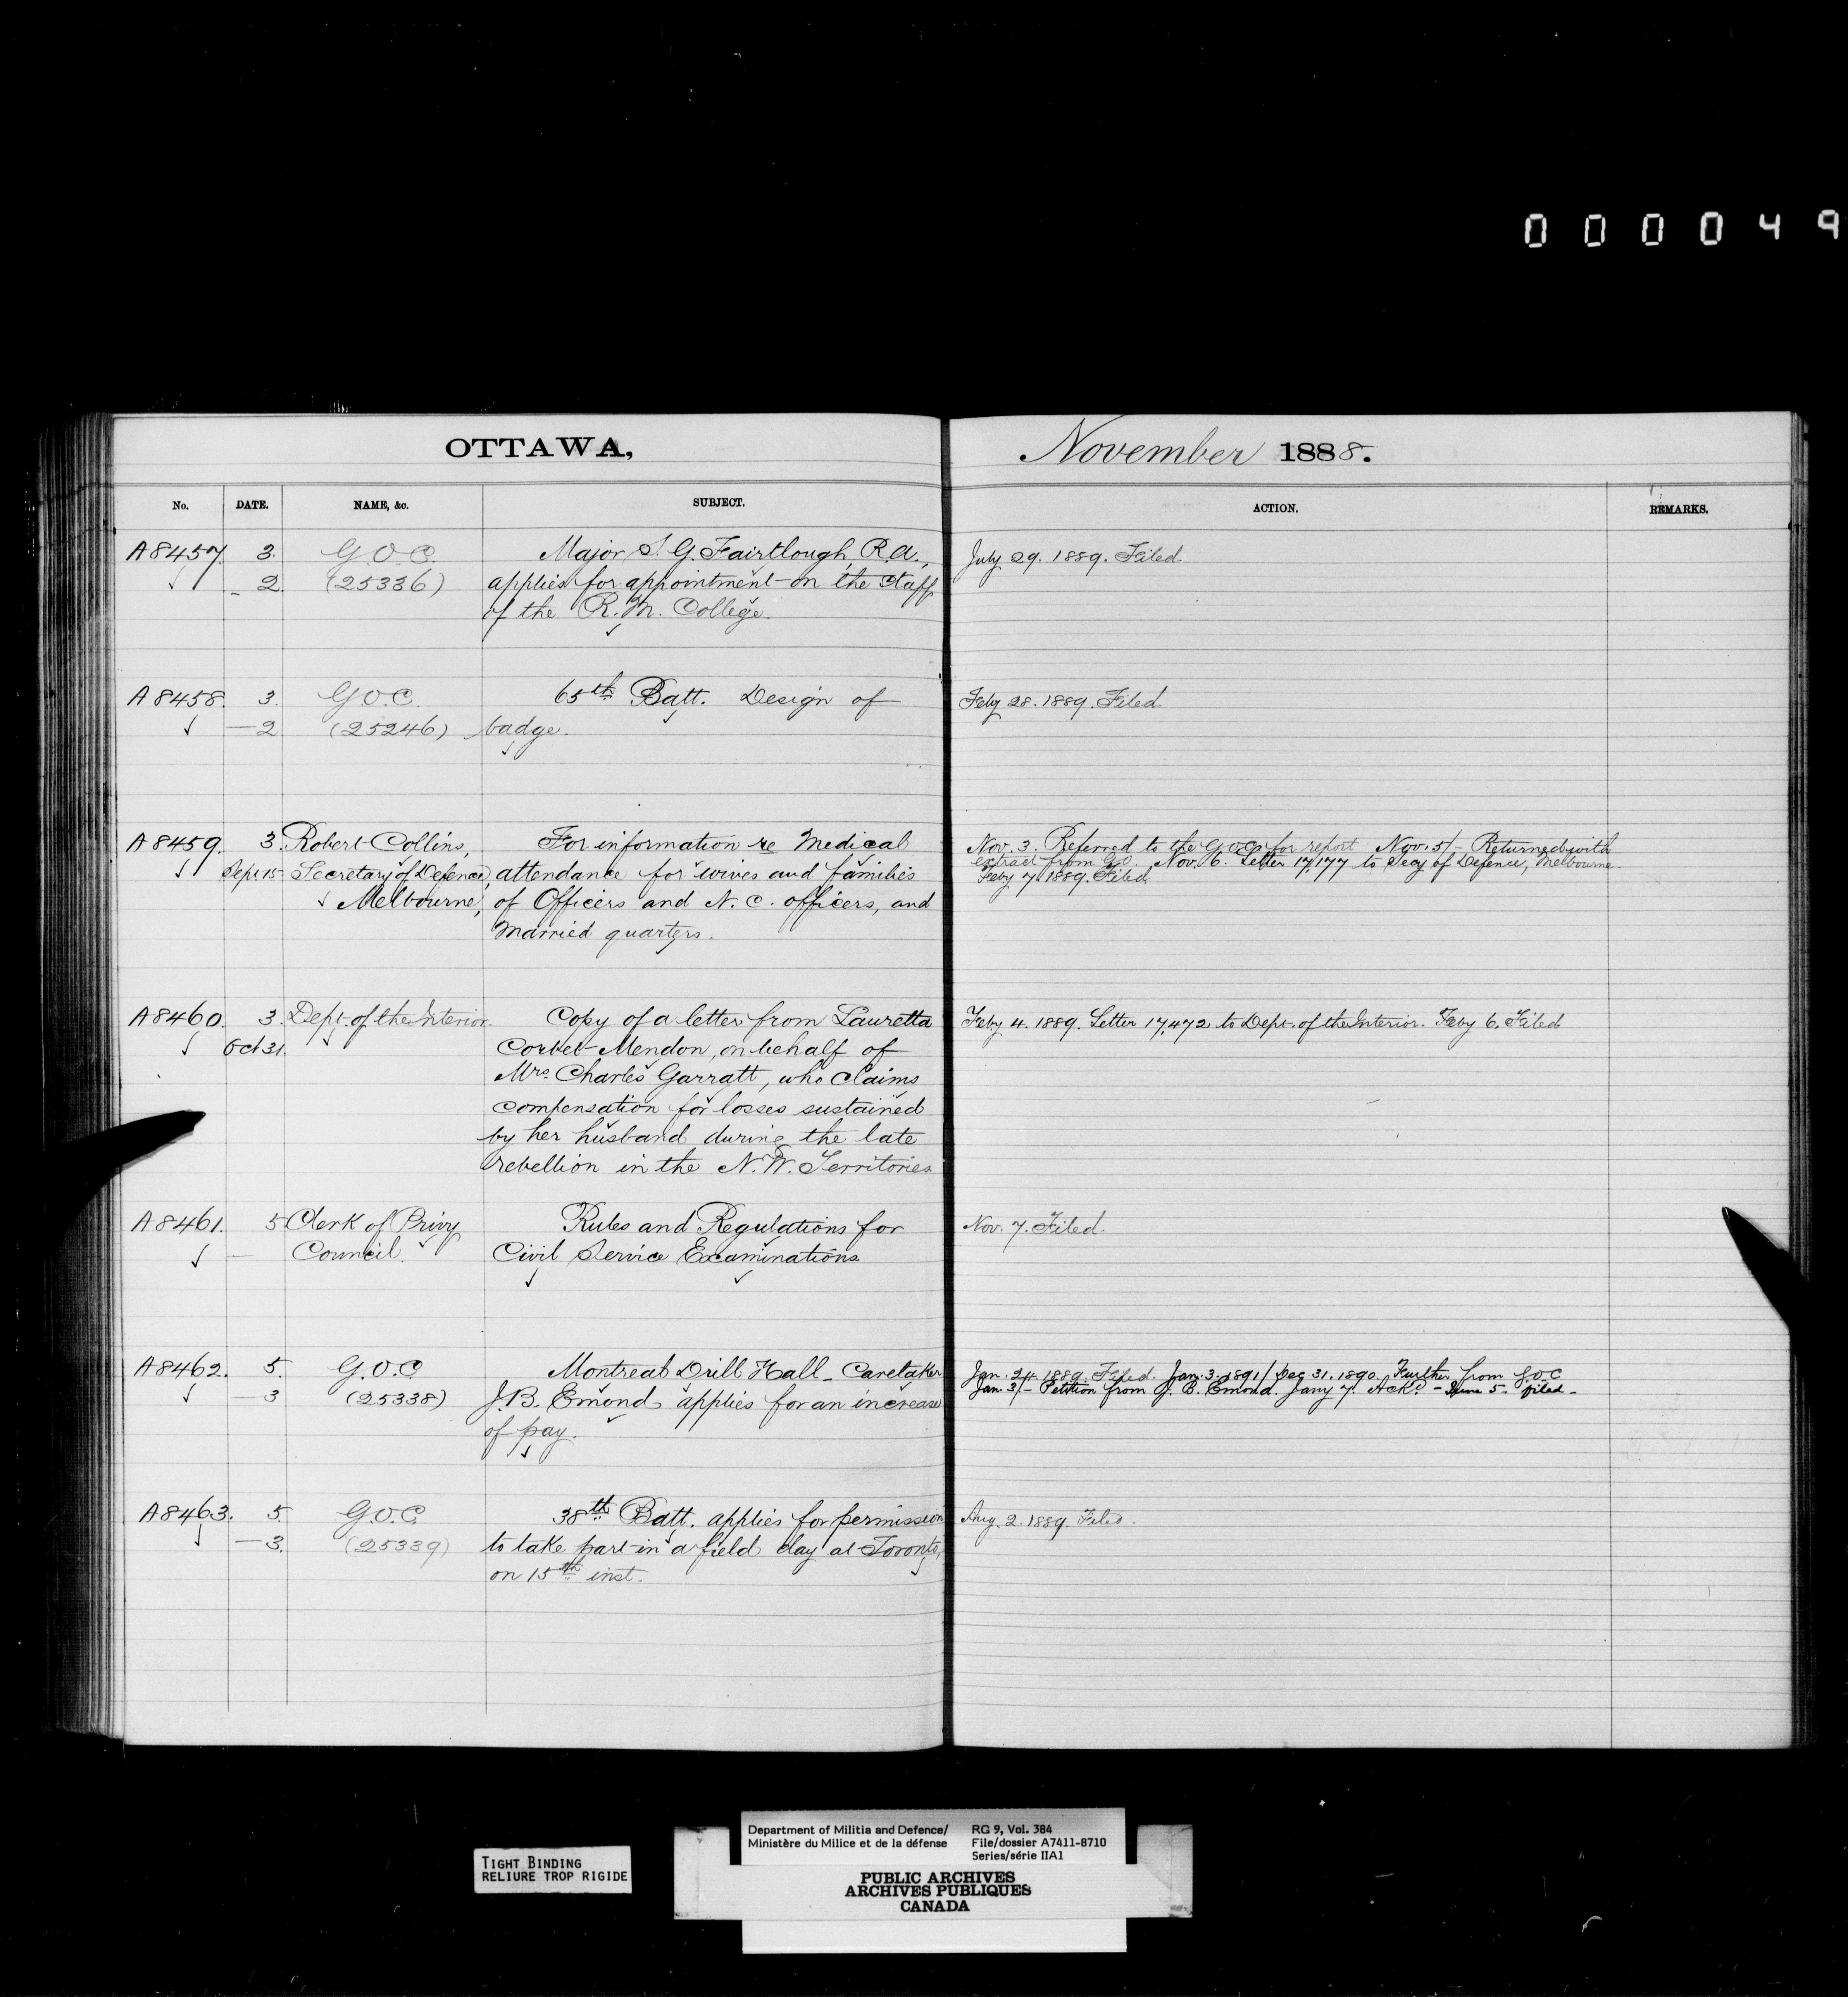 000049
OTTAWA,
November 1888.
No. DATE. NAME, &c. SUBJECT. ACTION. REMARKS.
A8457. 3. G.O.C. Major S. G. Fairtlough, R.A., July 29. 1889. Filed.
2. (25336) applies for appointment on the staff
of the R. M. College.
A8458. 3. G.O.C. 65th Batt. Design of Feby 28. 1889. Filed.
— 2 (25246) badge.
A8459. 3. Robert Collins, For information re Medical Nov. 3. Referred to the G.O.C. for report Nov. 5/- Returned with
Sept 15 Secretary of Defence, attendance for wives and families extract from G.O. Nov. 6. Letter 17,177 to Secy of Defence, Melbourne.
Melbourne, of Officers and N. C. officers, and Feby 7. 1889. Filed.
married quarters.
A8460. 3. Dept. of the Interior. Copy of a letter from Lauretta Feby 4. 1889. Letter 17,472 to Dept. of the Interior. Feby 6. Filed
Oct 31. Corbet-Mendon, on behalf of
Mrs. Charles Garratt, who claims
compensation for losses sustained
by her husband during the late
rebellion in the N. W. Territories
A8461. 5 Clerk of Privy Rules and Regulations for Nov. 7. Filed.
— Council. Civil Service Examinations
A8462. 5. G.O.C Montreal Drill Hall - Caretaker Jan. 24. 1889. Filed. Jan. 3. 1891/ Dec. 31. 1890. Further from G.O.C
— 3 (25338) J. B. Emond applies for an increase Jan. 3/- Petition from J. B. Emond. Jany 7. Ackd - June 5. filed -
of pay.
A8463. 5. G.O.C. 38th Batt. applies for permission Aug. 2. 1889. Filed.
— 3. (25339) to take part in a field day at Toronto,
on 15th inst.
TIGHT BINDING
RELIURE TROP RIGIDE
Department of Militia and Defence/ RG 9, Vol. 384
Ministère du Milice et de la défense File/dossier A7411-8710
Series/série IIA1
PUBLIC ARCHIVES
ARCHIVES PUBLIQUES
CANADA